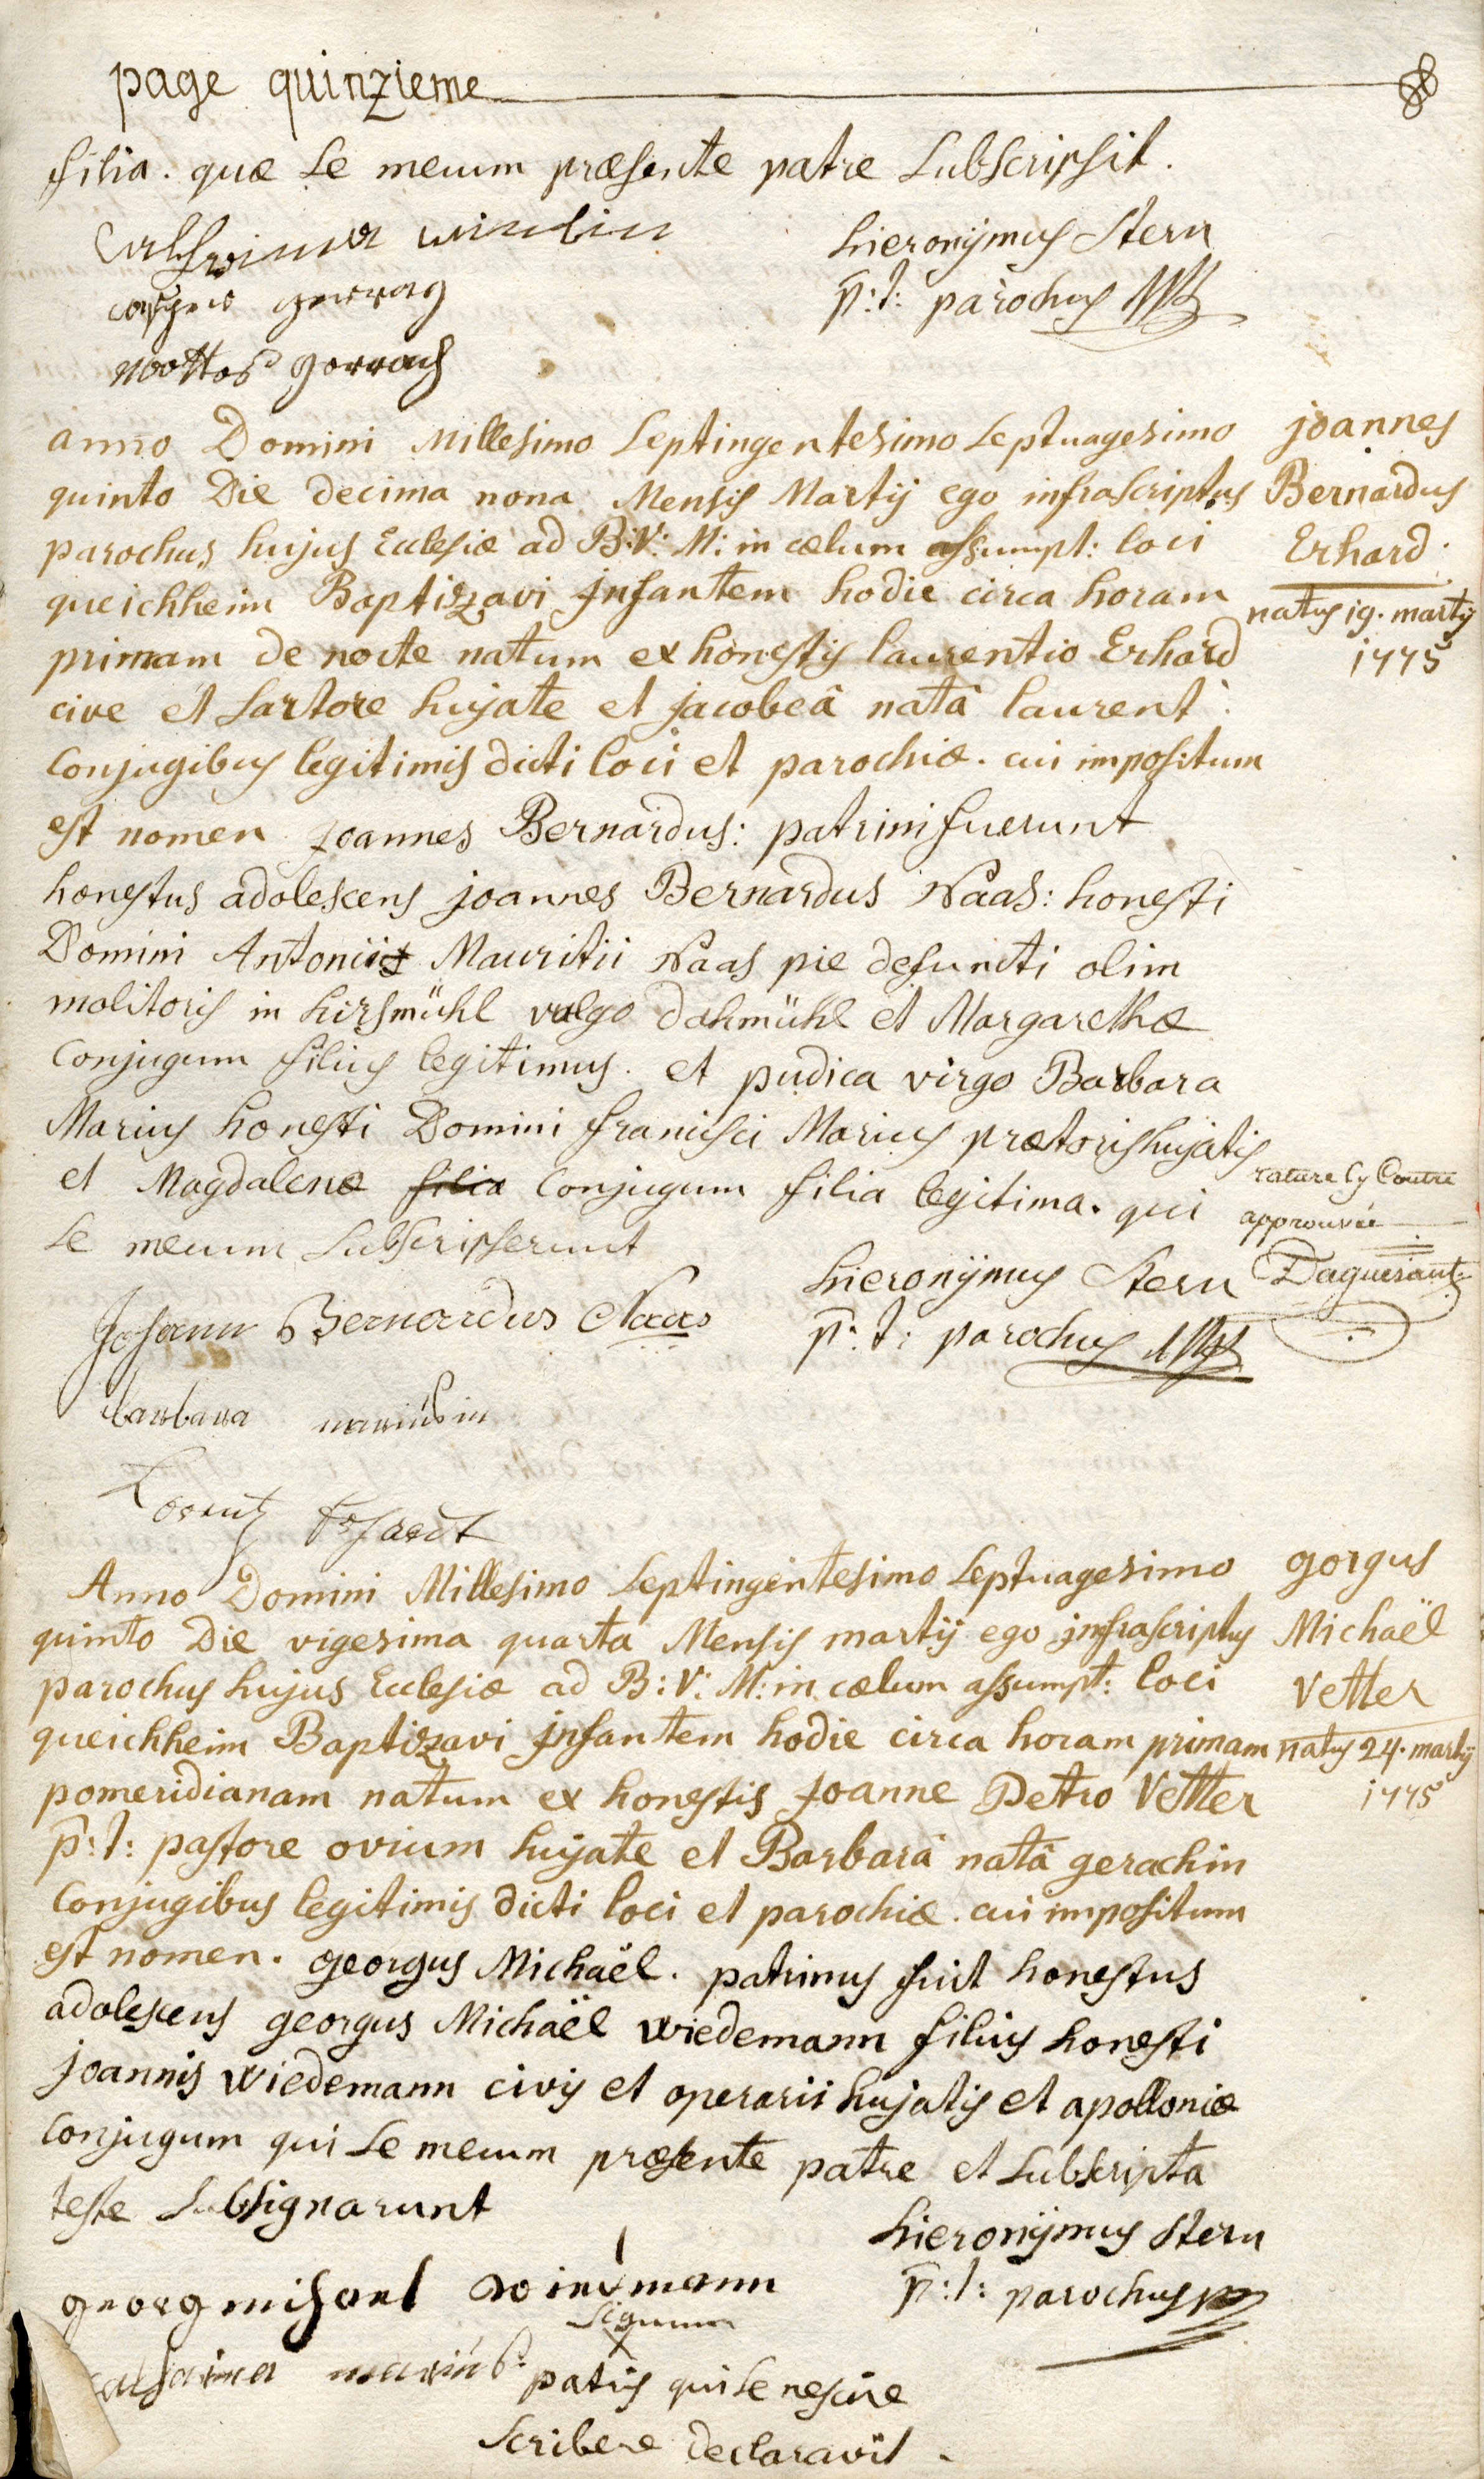 page quinzieme
filia. quæ se mecum præsente patre subscripsit.
hieronymus Stern
p:t: parochus
gerrag
gerrach
anno Domini Millesimo septingentesimo septuagesimo
quinto Die decima nona Mensis Martij ego infrascriptus
parochus hujus Ecclesiæ ad B:V: M: in cælum assumpt: loci
queichheim Baptizavi jnfantem hodie circa horam
primam de nocte natum ex honestis laurentio Erhard
cive et sartore hujate et jacobeâ natâ laurent
conjugibus legitimis dicti loci et parochiæ. cui impositum
est nomen joannes Bernardus: patrini fuerunt
honestus adolescens joannes Bernardus Naas: honesti
Domini Antonii Mauritii Naas pie defuncti olim
molitoris in hirsmühl vulgo dahmühl et Margarethæ
conjugum filius legitimus. et pudica virgo Barbara
Marius honesti Domini francisci Marius prætoris hujatis
et Magdalenæ filia conjugum filia legitima. qui
se mecum subscripserunt
joannes
Bernardus
Erhard.
natus 19. martij
1775
rature cy Contre
approuvée
Daguerant
hieronijmus Stern
p:t: parochus
Johann Bernardus Naas
barbara mariusin
Lorentz Erhardt
Anno Domini Millesimo septingentesimo septuagesimo
quinto Die vigesima quarta Mensis martij ego jnfrascriptus
parochus hujus Ecclesiæ ad B:V: M: in cælum assumpt: loci
queichheim Baptizavi jnfantem hodie circa horam primam
pomeridianam natum ex honestis joanne Petro Vetter
p:t: pastore ovium hujate et Barbarâ natâ gerachin
conjugibus legitimis dicti loci et parochiæ. cui impositum
est nomen. georgus Michaël. patrinus fuit honestus
adolescens georgus Michaël wiedemann filius honesti
joannis wiedemann civis et operarii hujatis et apolloniæ
conjugum qui se mecum præsente patre et subscripta
teste subsignarunt
gorgus
Michaël
Vetter
natus 24. martij
1775
hieronijmus Stern
p:t: parochus
georg michael
signum
x
marius
patris qui se nescire
scribere declaravit.